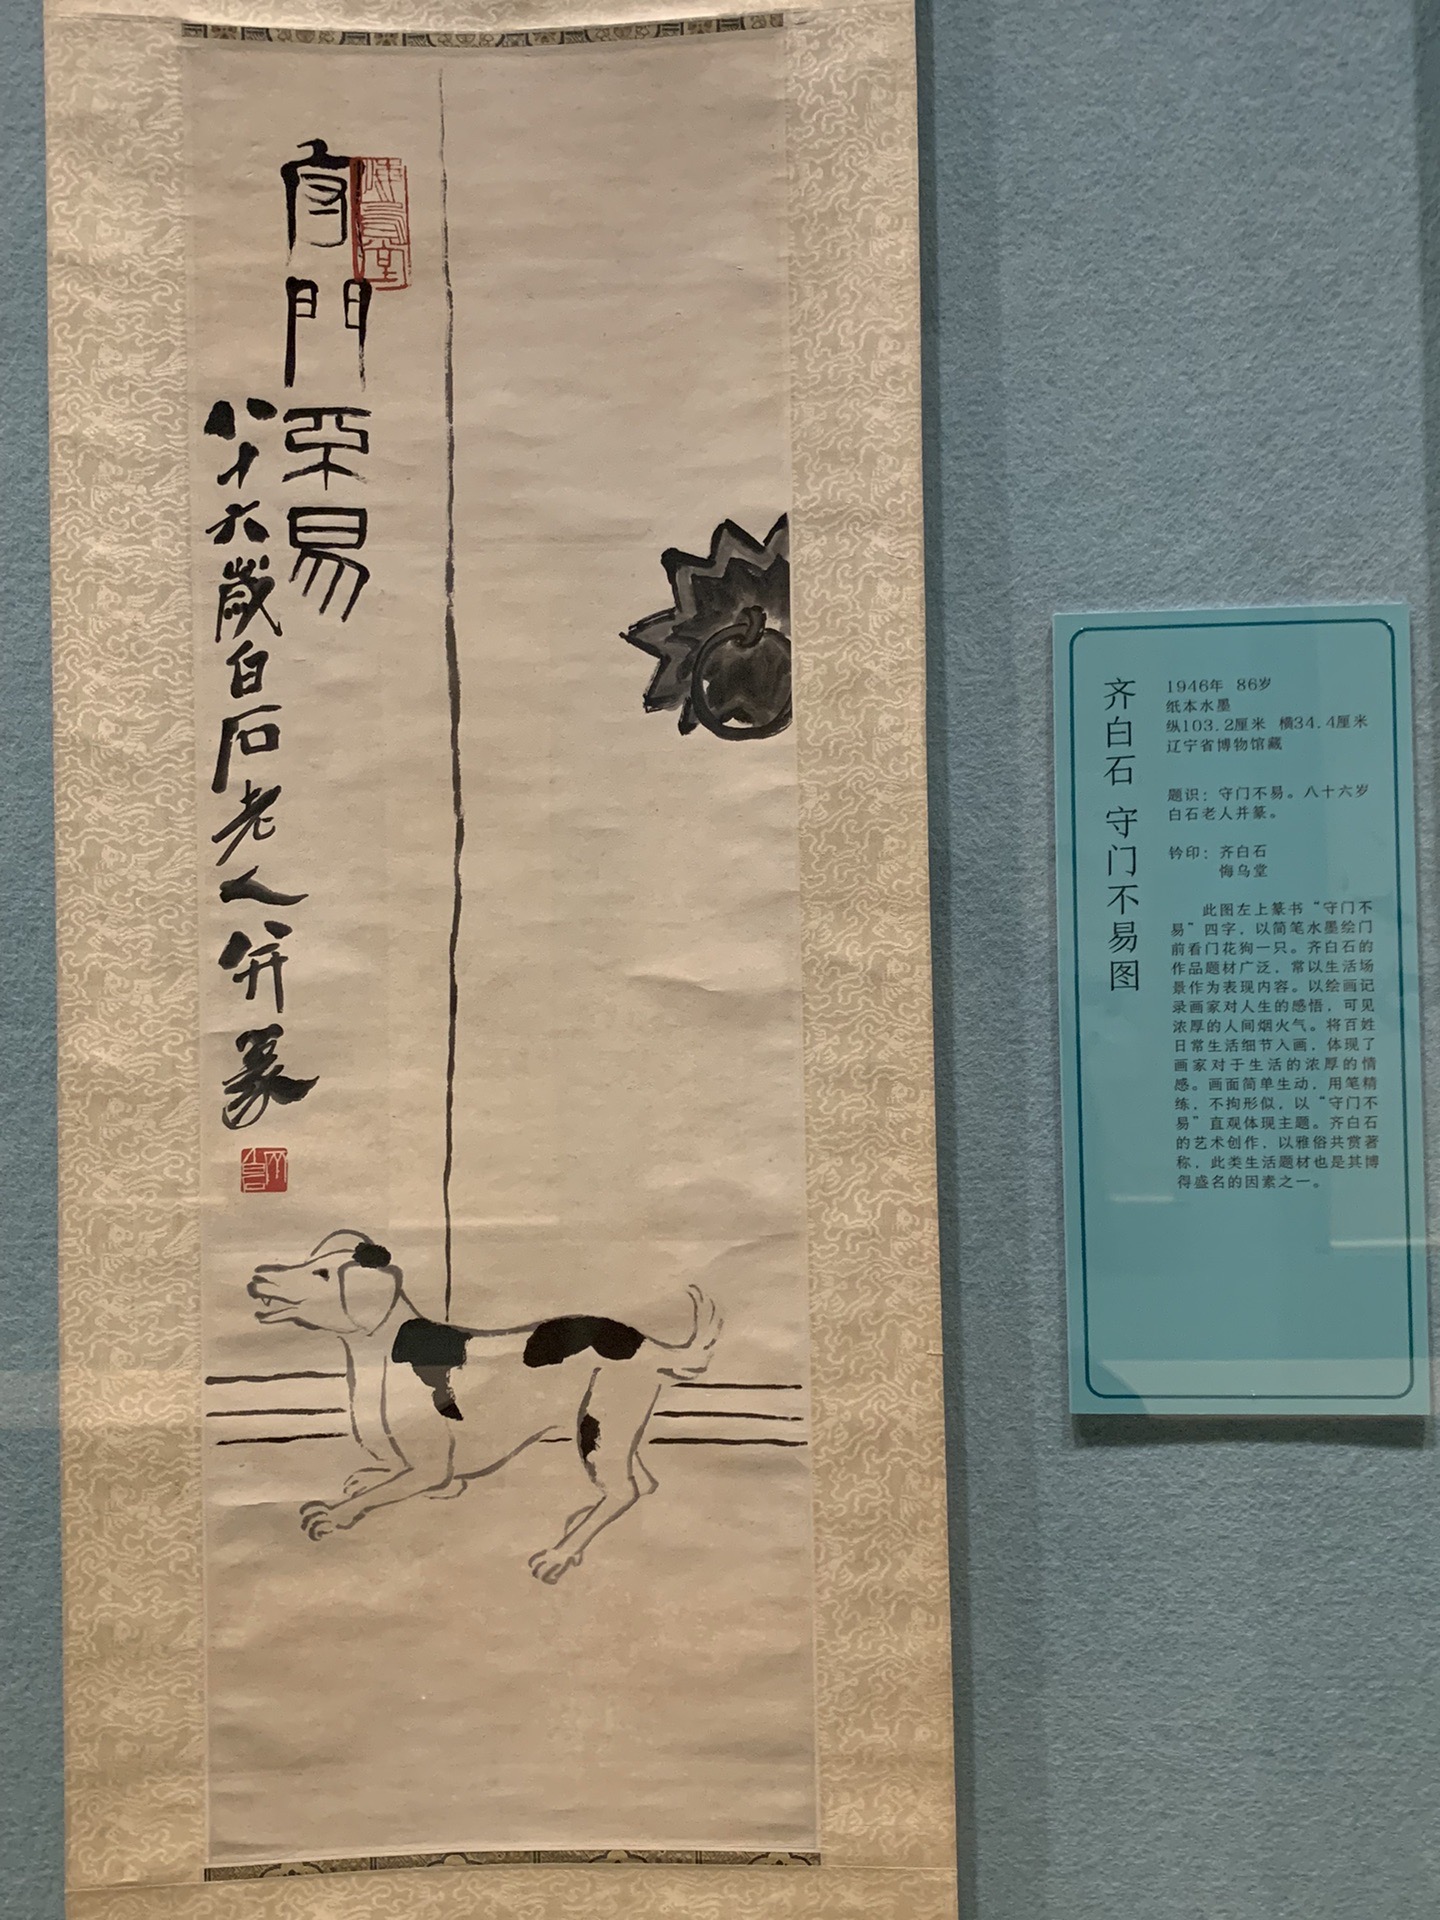 守門不易
八十六歲白石老人并篆
悔烏堂
齐白石 守门不易图
1946年 86岁
纸本水墨
纵103.2厘米 横34.4厘米
辽宁省博物馆藏
题识：守门不易。八十六岁
白石老人并篆。
钤印：齐白石
悔乌堂
此图左上篆书“守门不
易”四字，以简笔水墨绘门
前看门花狗一只。齐白石的
作品题材广泛，常以生活场
景作为表现内容。以绘画记
录画家对人生的感悟，可见
浓厚的人间烟火气。将百姓
日常生活细节入画，体现了
画家对于生活的浓厚的情
感。画面简单生动，用笔精
练，不拘形似，以“守门不
易”直观体现主题。齐白石
的艺术创作，以雅俗共赏著
称，此类生活题材也是其博
得盛名的因素之一。